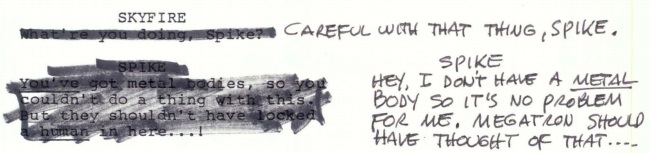 SKYFIRE
What're you doing, Spike? CAREFUL WITH THAT THING, SPIKE.
SPIKE
You've got metal bodies, so you
couldn't do a thing with this.
But they shouldn't have locked
a human in here...!
SPIKE
HEY, I DON'T HAVE A METAL
BODY SO IT'S NO PROBLEM
FOR ME. MEGATRON SHOULD
HAVE THOUGHT OF THAT....